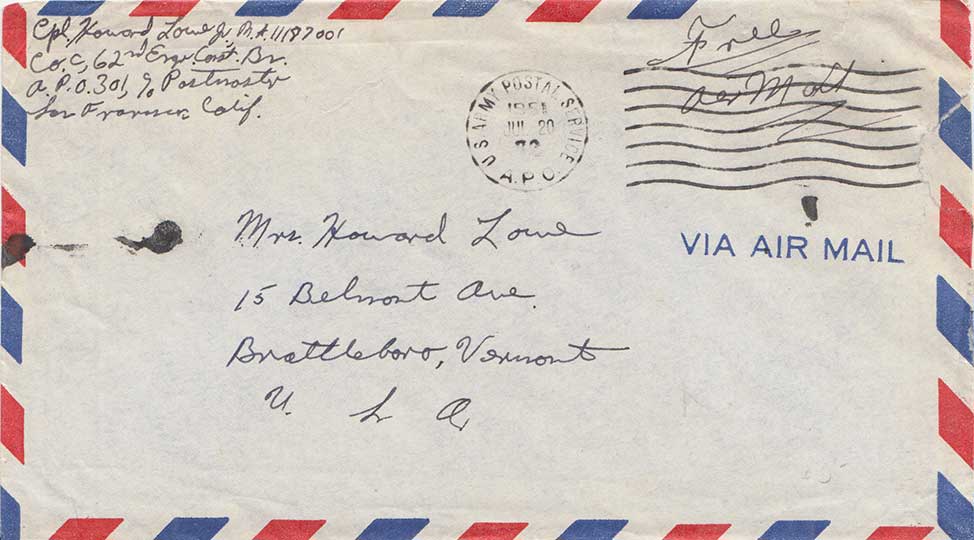 Cpl. Howard Lowe Jr. R.A. 11187001
Co. C, 62nd Engr. Const. Bn.
A.P.O. 301, c/o Postmaster
San Francisco, Calif.
Free
Air Mail
U.S. ARMY POSTAL SERVICE
1951
JUL 20
A.P.O.
VIA AIR MAIL
Mrs. Howard Lowe
15 Belmont Ave.
Brattleboro, Vermont
U. S. A.